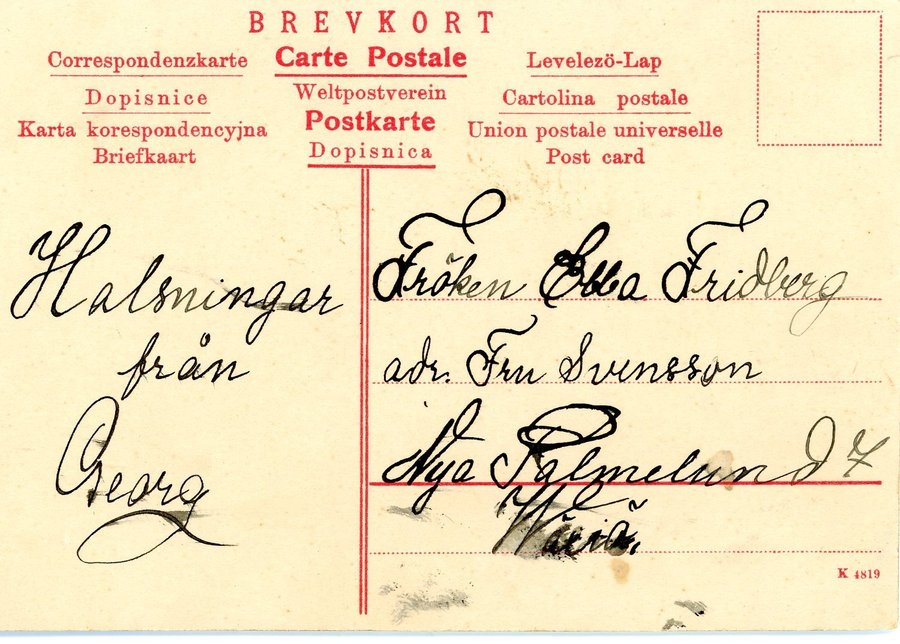 BREVKORT
Correspondenzkarte
Carte Postale
Levelezö-Lap
Dopisnice
Weltpostverein
Cartolina postale
Karta korespondencyjna
Postkarte
Union postale universelle
Briefkaart
Dopisnica
Post card
Halsningar
från
Georg
Fröken Ebba Fridberg
adr. Fru Svensson
Nya Palmelund 7
K 4819